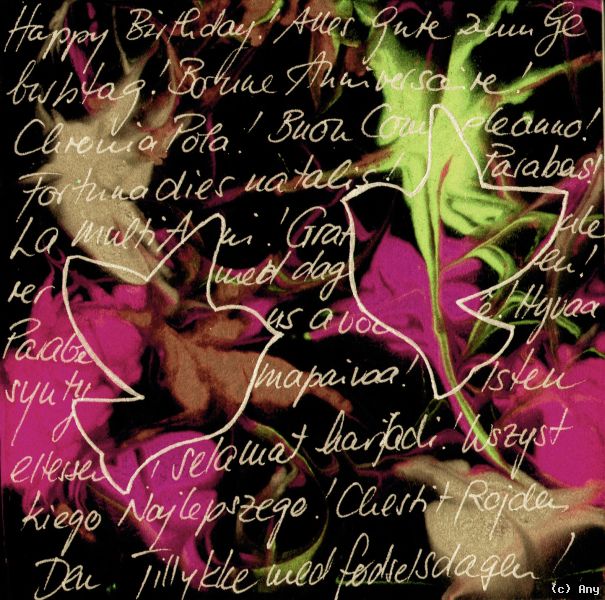 Happy Birthday! Alles Gute zum Ge
burtstag! Bonne Anniversaire!
Chronia Pola! Buon Com pleanno!
Fortuna dies natalis! Parabas!
La multi A ni! Grat ule
rer med dag en!
Parabe ns a voc ê! Hyvaa
synty mapaivaa! Isten
eltessen! selamat harjadi! Wszyst
kiego Najlepszego! Chestit Rojden
Den Tillykke med fodselsdagen!
(c) Any